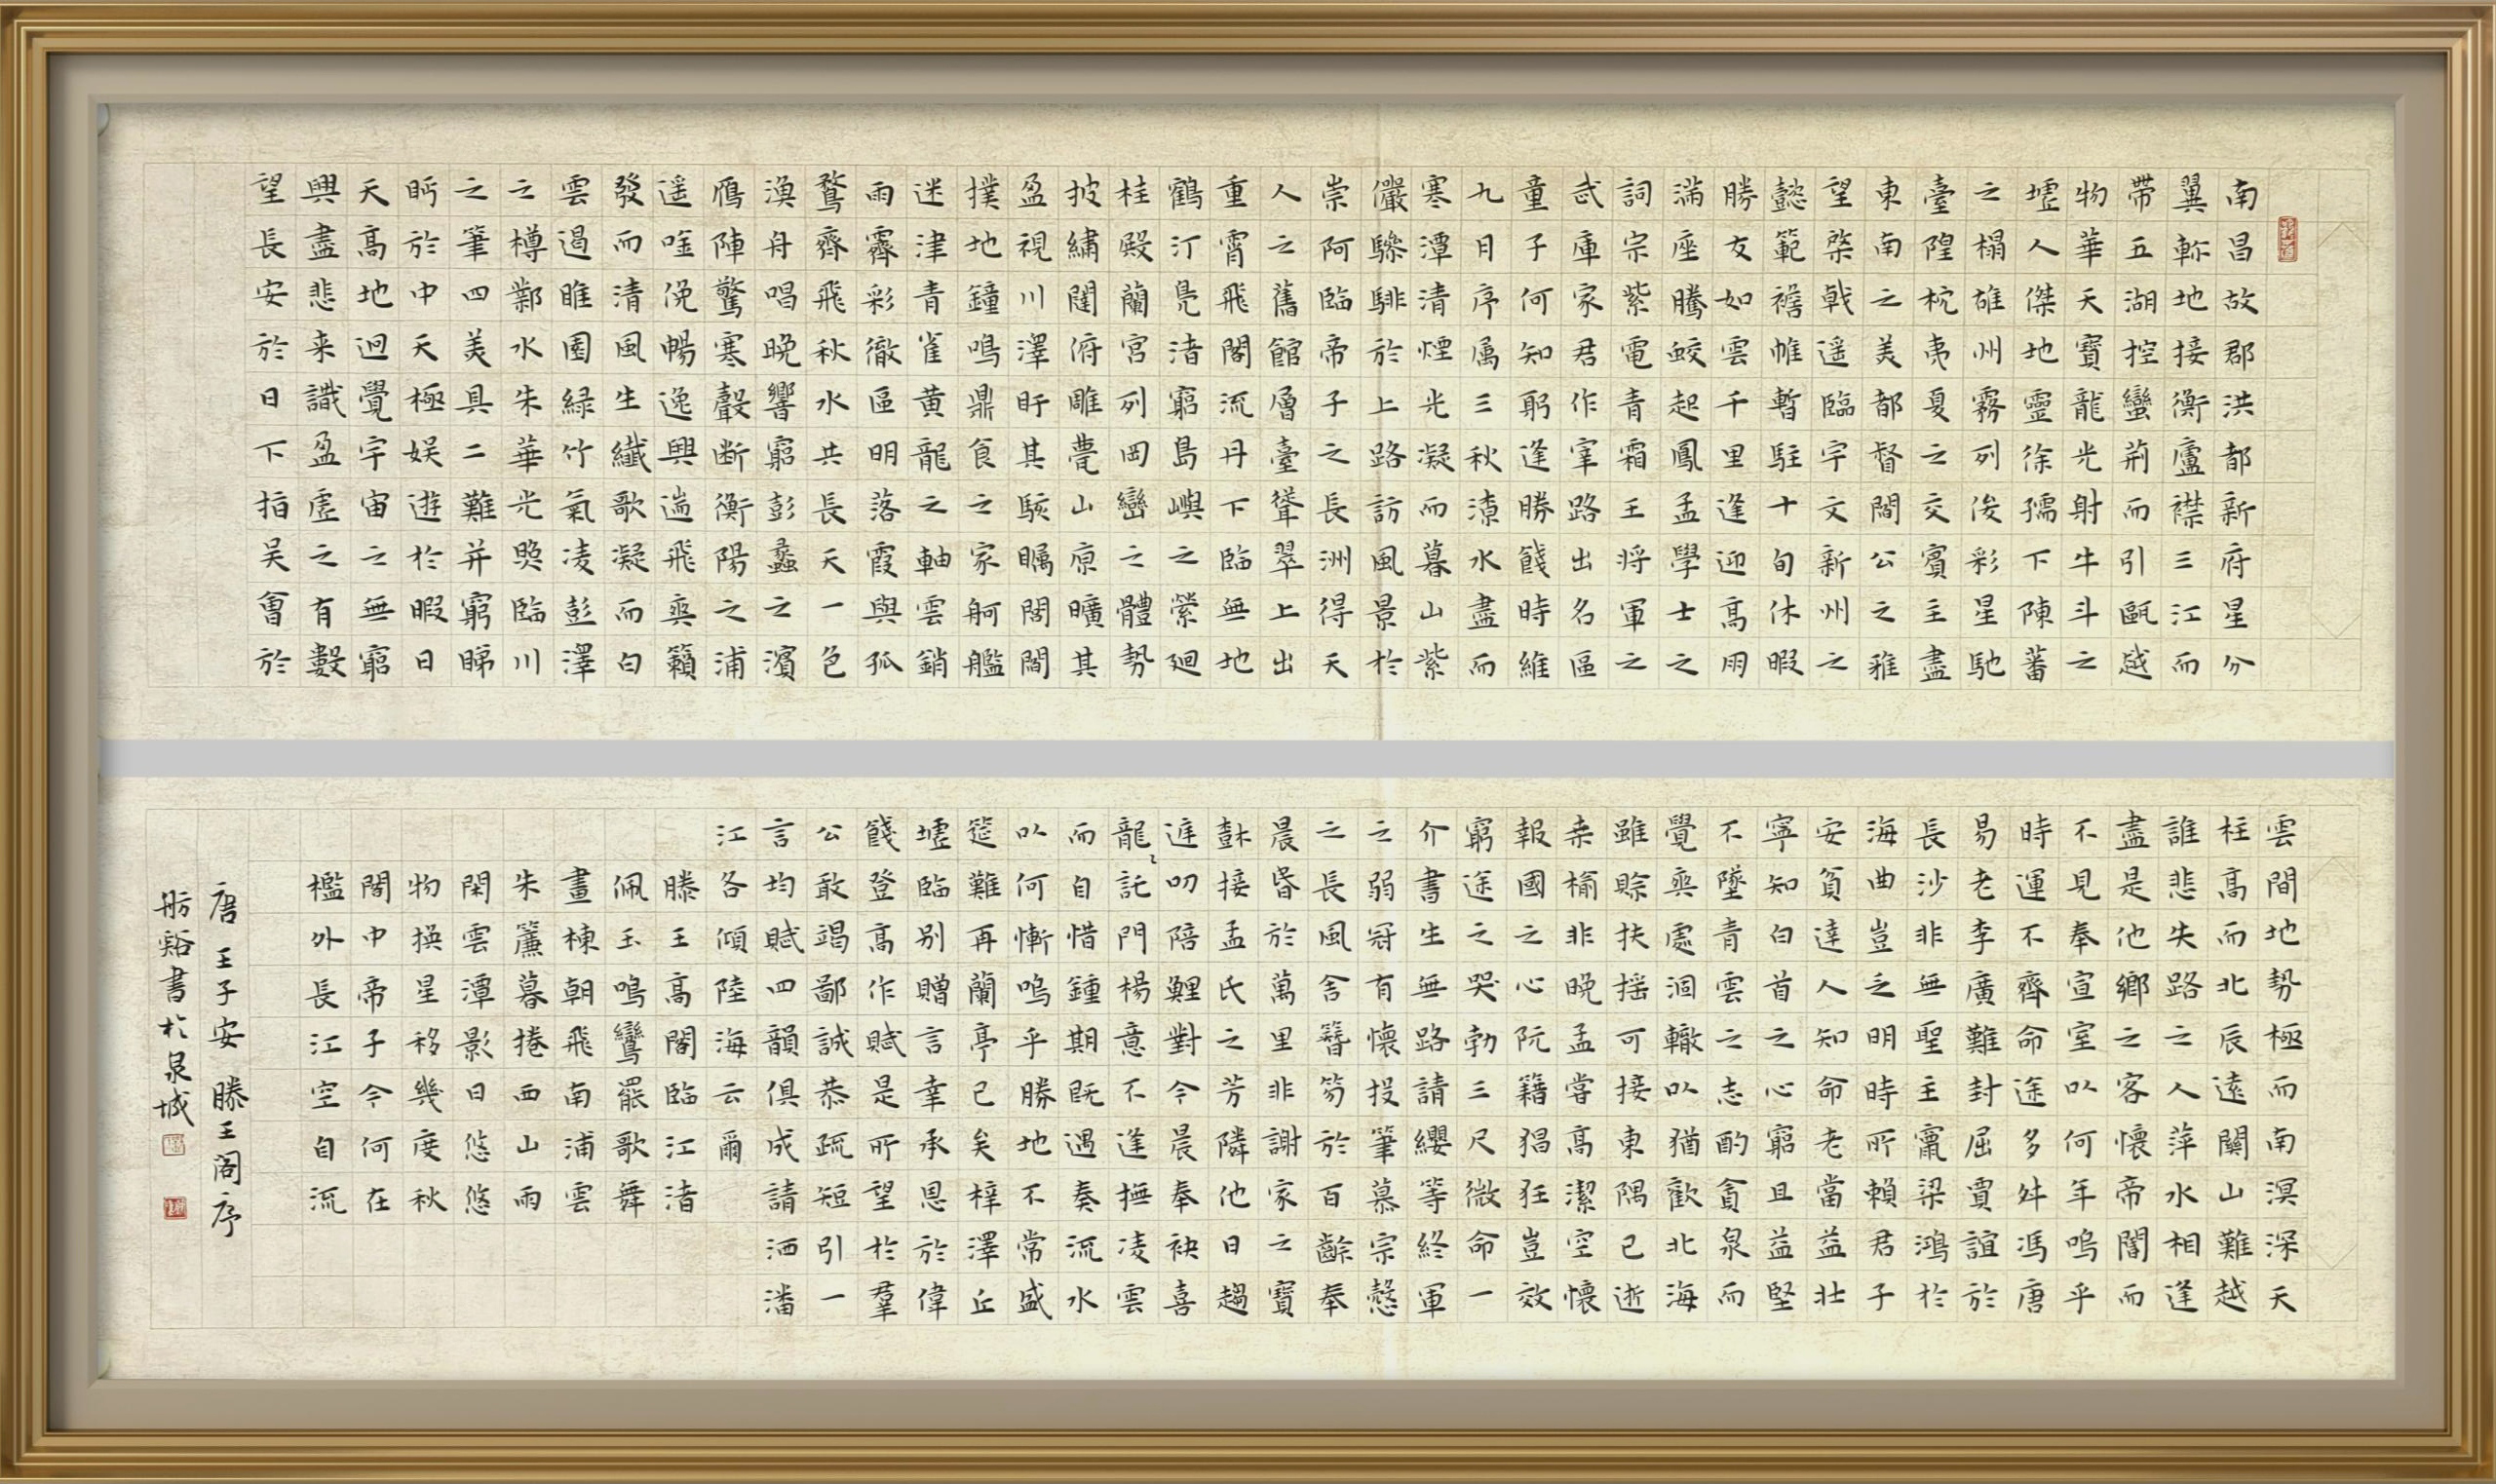 南昌故郡洪都新府星分
翼軫地接衡廬襟三江而
帶五湖控蠻荊而引甌越
物華天寶龍光射牛斗之
墟人傑地靈徐孺下陳蕃
之榻雄州霧列俊彩星馳
臺隍枕夷夏之交賓主盡
東南之美都督閻公之雅
望棨戟遥臨宇文新州之
懿範襜帷暫駐十旬休暇
勝友如雲千里逢迎高朋
滿座騰蛟起鳳孟學士之
詞宗紫電青霜王將軍之
武庫家君作宰路出名區
童子何知躬逢勝餞時維
九月序属三秋潦水盡而
寒潭清煙光凝而暮山紫
儼驂騑於上路訪風景於
崇阿臨帝子之長洲得天
人之舊館層臺聳翠上出
重霄飛閣流丹下臨無地
鶴汀凫渚窮島嶼之縈廻
桂殿蘭宮列岡巒之體勢
披繡闥俯雕甍山原曠其
盈視川澤盱其駭矚閭閻
撲地鐘鳴鼎食之家舸艦
迷津青雀黄龍之軸雲銷
雨霽彩徹區明落霞與孤
鶩齊飛秋水共長天一色
漁舟唱晚響窮彭蠡之濱
雁陣驚寒聲断衡陽之浦
遥唫俛暢逸興遄飛爽籟
發而清風生纖歌凝而白
雲遏睢園緑竹氣凌彭澤
之樽鄴水朱華光照臨川
之筆四美具二難并窮睇
眄於中天極娱遊於暇日
天高地迥覺宇宙之無窮
興盡悲来識盈虛之有數
望長安於日下指吴會於
雲間地勢極而南溟深天
柱高而北辰遠關山難越
誰悲失路之人萍水相逢
盡是他鄉之客懷帝閽而
不見奉宣室以何年嗚乎
時運不齊命途多舛馮唐
易老李廣難封屈賈誼於
長沙非無聖主竄梁鴻於
海曲豈乏明時所賴君子
安貧達人知命老當益壯
寧知白首之心窮且益堅
不墜青雲之志酌貪泉而
覺爽處涸轍以猶歡北海
雖賒扶摇可接東隅已逝
桒榆非晚孟嘗高潔空懷
報國之心阮籍猖狂豈效
窮途之哭勃三尺微命一
介書生無路請纓等終軍
之弱冠有懷投筆慕宗愨
之長風舍簪笏於百齡奉
晨昏於萬里非謝家之寶
樹接孟氏之芳隣他日趨
庭叨陪鯉對今晨奉袂喜
龍託門楊意不逢撫凌雲
而自惜鍾期既遇奏流水
以何慚嗚乎勝地不常盛
筵難再蘭亭已矣梓澤丘
墟臨别贈言幸承恩於偉
餞登高作賦是所望於羣
公敢竭鄙誠恭疏短引一
言均賦四韻俱成請洒潘
江各傾陸海云爾
滕王高閣臨江渚
佩玉鳴鸞罷歌舞
畫棟朝飛南浦雲
朱簾暮捲西山雨
閑雲潭影日悠悠
物换星移幾度秋
閣中帝子今何在
檻外長江空自流
唐 王子安 滕王阁序
舫谿書於泉城